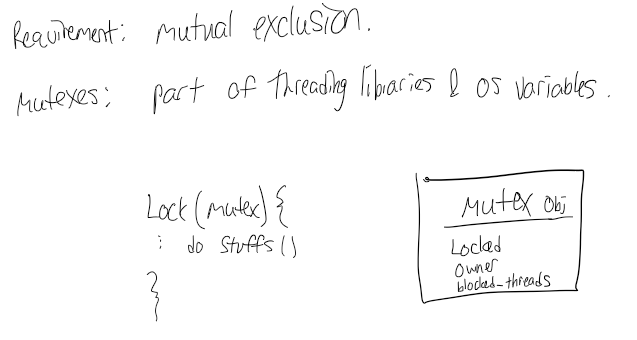 Requirement: mutual exclusion.
Mutexes: part of threading libraries & OS variables.
Lock (mutex) {
: do stuffs ()
}
Mutex Obj
Locked
Owner
blocked_threads